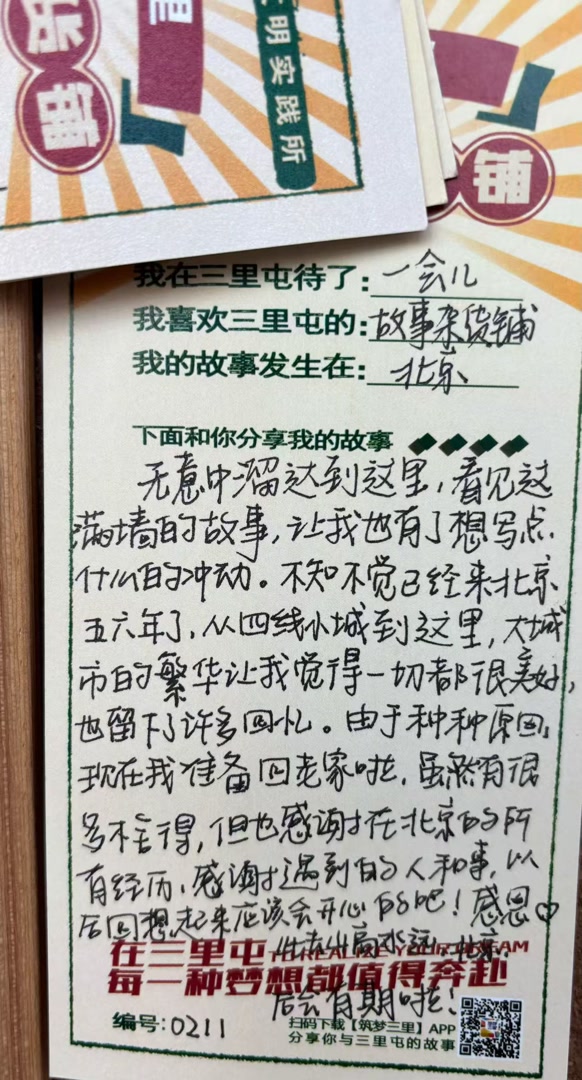 铺
明实践所
铺
我在三里屯待了：一会儿
我喜欢三里屯的：故事杂货铺
我的故事发生在：北京
下面和你分享我的故事
无意中溜达到这里，看见这
满墙的故事，让我也有了想写点
什么的冲动。不知不觉已经来北京
五六年了，从四线小城到这里，大城
市的繁华让我觉得一切都很美好，
也留下了许多回忆。由于种种原因，
现在我准备回老家啦，虽然有很
多不舍得，但也感谢在北京的所
有经历，感谢遇到的人和事，以
后回想起来应该会开心的吧！感恩♡
在三里屯
山高水远，北京，
每一种梦想都值得奔赴
后会有期啦！
编号：0211
扫码下载【筑梦三里】APP
分享你与三里屯的故事